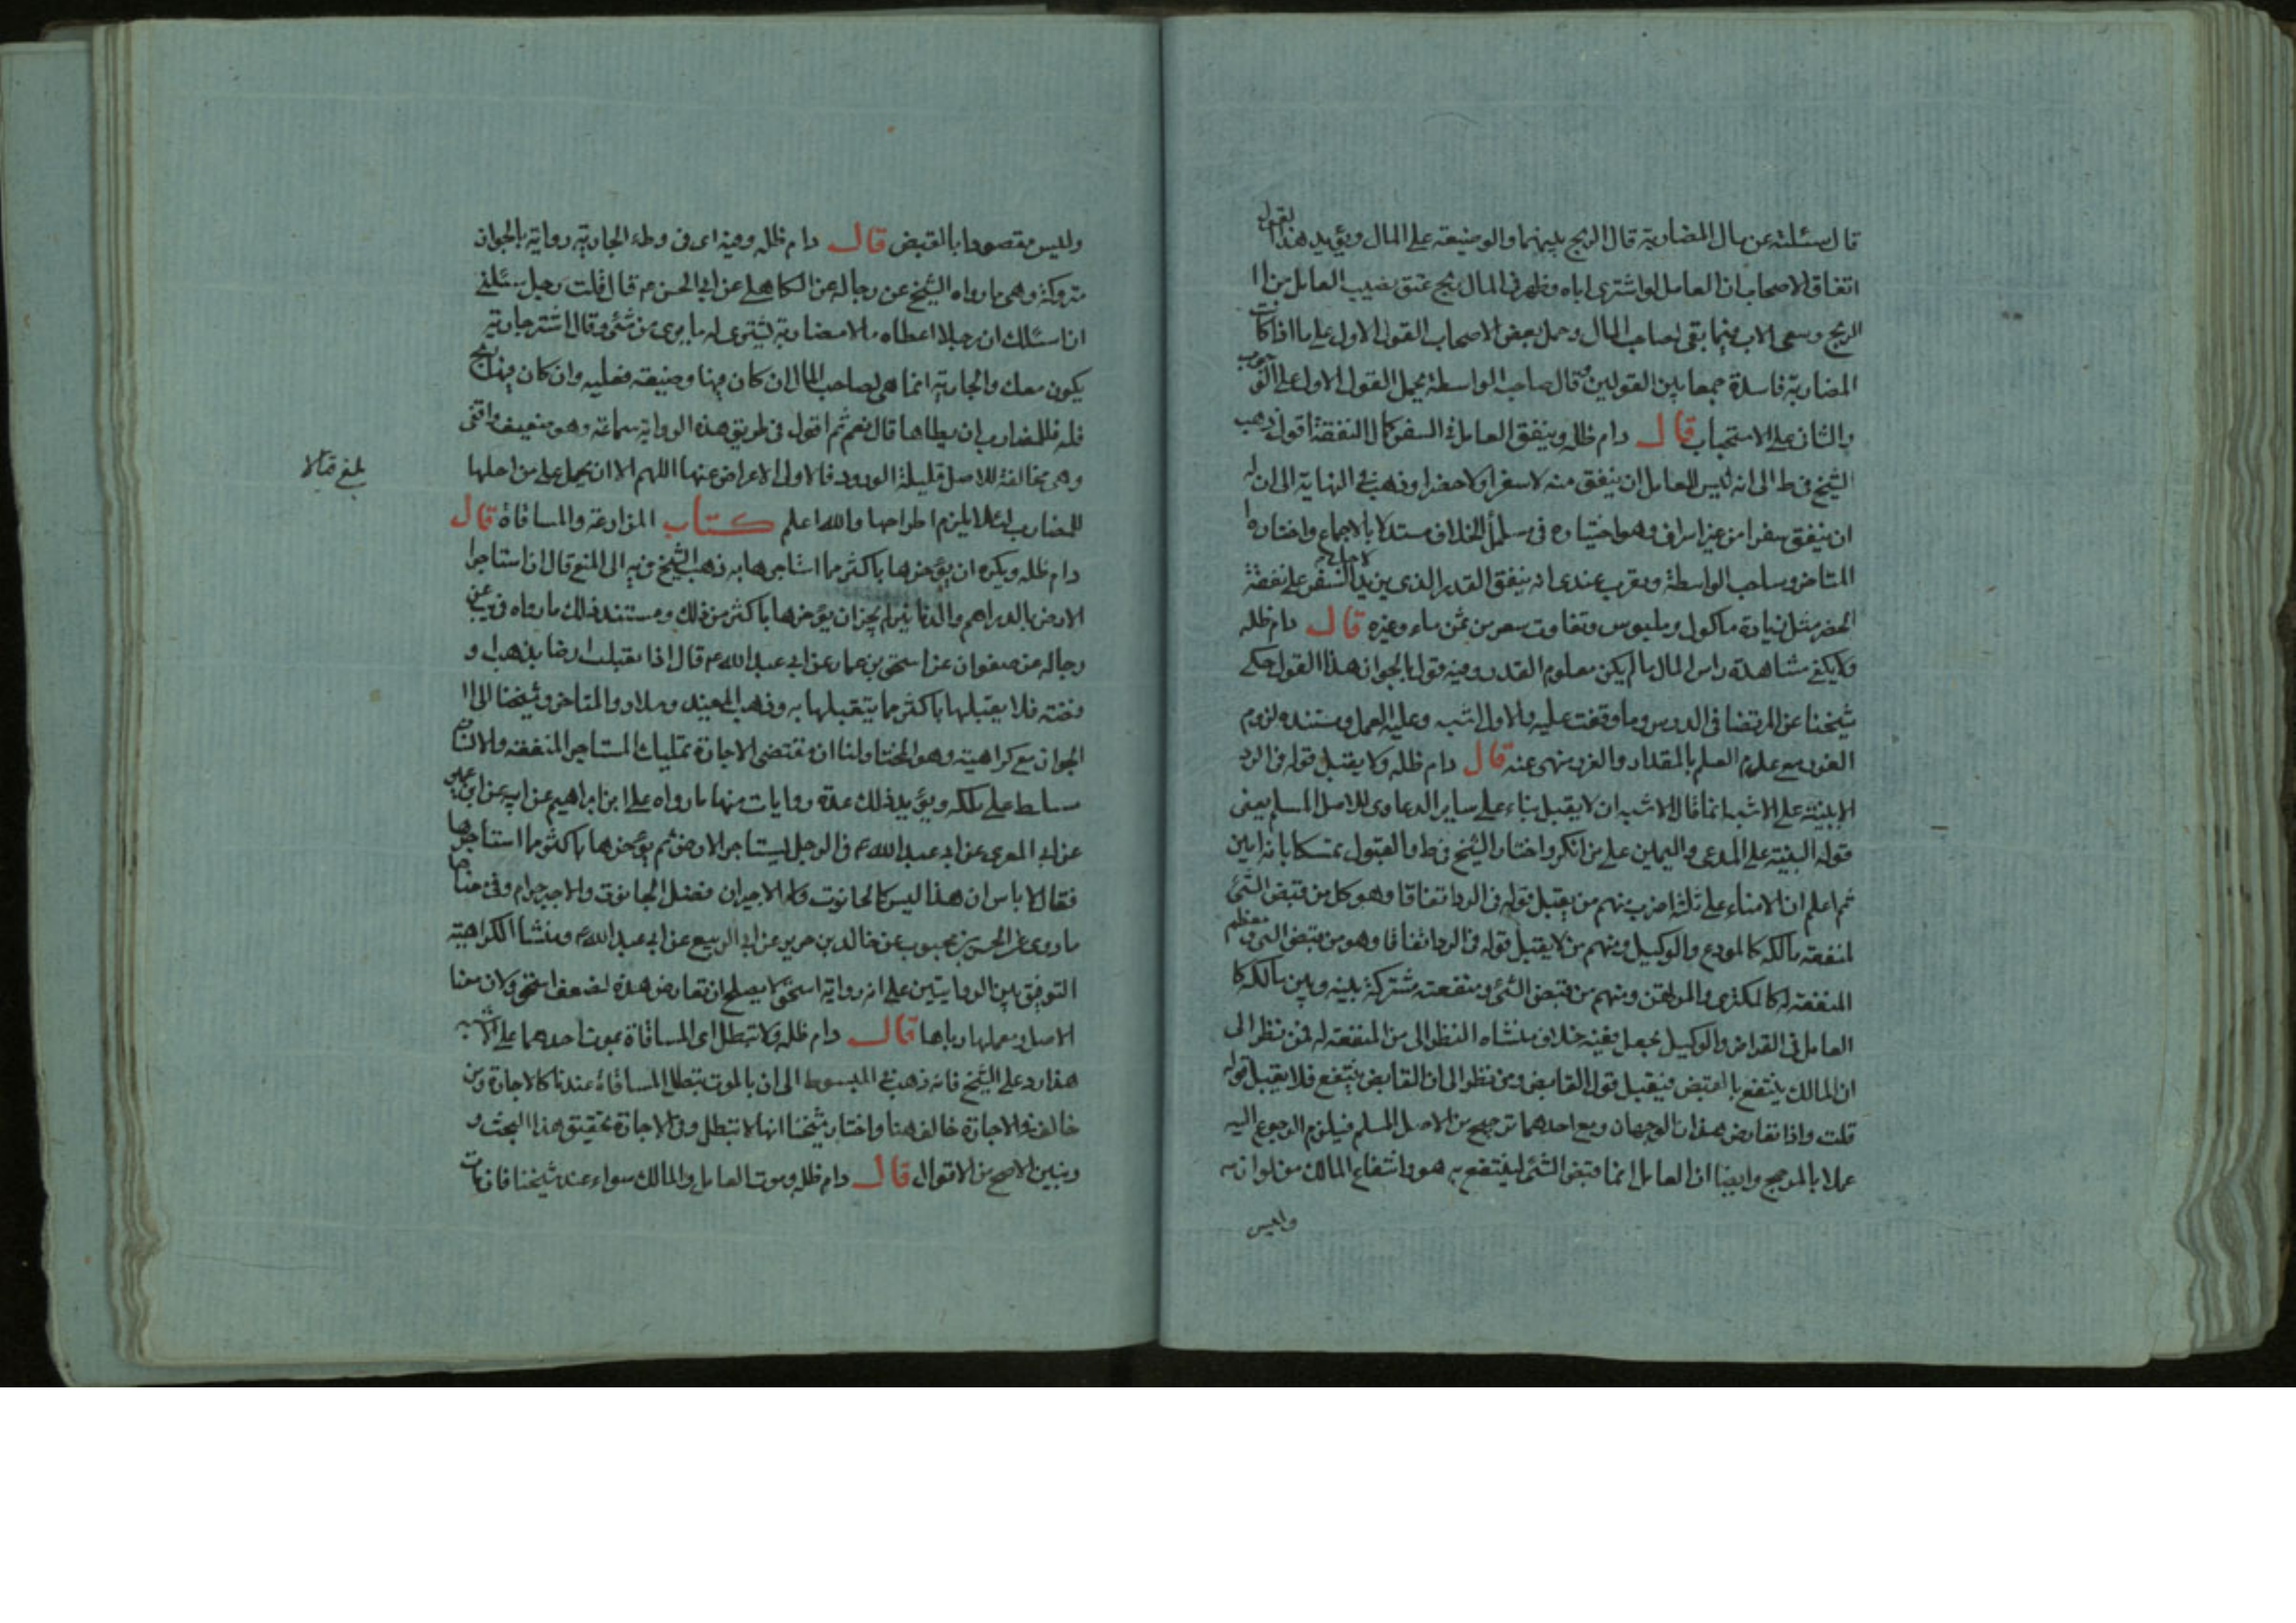 قال سئلته عن مال المضاربة قال الربح بينهما والوضيعة على المال ويؤيد هذا القول
اتفاق الاصحاب ان العامل لو اشترى اباه وظهر في المال ربح عتق نصيب العامل من ا
الربح وسعى الاب فيما بقى لصاحب المال وحمل بعض الاصحاب القول الاول على ما اذا كانت
المضاربة فاسدة جمعا بين القولين وقال صاحب الواسطة يحمل القول الاول على الوجوب
والثانى على الاستحباب قال دام ظله وينفق العامل في السفر كمال النفقة اقول ذهب
الشيخ في ط الى انه ليس للعامل ان ينفق منه لا سفرا ولا حضرا وذهب في النهاية الى ان له
ان ينفق سفرا من غير اسراف وهو اختياره في مسائل الخلاف مستدلا بالاجماع واختاره ا
المتاخر وصاحب الواسطة ويقرب عندى انه ينفق القدر الذى يزيد لاجل السفر على نفقة
الحضر مثل زيادة ماكول وملبوس وتفاوت سعر من ثمن ماء وغيره قال دام ظله
ولا يكفى مشاهدة راس المال ما لم يكن معلوم القدر وفيه قول بالجواز هذا القول حكى
شيخنا عن المرتضى في الدرس وما وقفت عليه والاول اشبه وعليه العمل ومستنده لزوم
الغرر مع عدم العلم بالمقدار والغرر منهى عنه قال دام ظله ولا يقبل قوله في الرد
الا ببينة على الاشبه انما قال الاشبه ان لا يقبل بناء على ساير الدعاوى للاصل المسلم يعنى
قوله البينة على المدعى واليمين على من انكر واختار الشيخ في ط والقبول تمسكا بانه امين
ثم اعلم ان الامناء على ثلثة اضرب منهم من يقبل قوله في الرد اتفاقا وهو كل من قبض الشئ
لمنفعة مالكه كالمودع والوكيل ومنهم من لا يقبل قوله في الرد اتفاقا وهو من قبض الشئ ومعظم
المنفعة له كالمكترى والمرتهن ومنهم من قبض الشئ ومنفعته مشتركة بينه وبين مالكه كا
العامل في القراض والوكيل بجعل ففيه خلاف منشاه النظر الى من المنفعة له فمن نظر الى
ان المالك ينتفع بالقبض فيقبل قول القابض ومن نظر الى ان القابض ينتفع فلا يقبل قوله
قلت واذا تعارض هذان الوجهان ومع احدهما ترجيح من الاصل المسلم فيلزم الرجوع اليه
عملا بالمرجح وايضا ان العامل انما قبض الشئ لينتفع به هو وانتفاع المالك من لوازمه
وليس
وليس مقصودا بالقبض قال دام ظله وفيه اى في وطء الجارية رواية بالجواز
متروكة وهى ما رواه الشيخ عن رجاله عن الكاهلى عن ابى الحسن ع قال قلت رجل سئلنى
ان اسئلك ان رجلا اعطاه مالا مضاربة يشترى له ما يرى من شئ وقال اشتر جارية
يكون معك والجارية انما هى لصاحب المال ان كان فيها وضيعة فعليه وان كان فيها ربح
فله فللمضارب ان يطاها قال نعم ثم اقول في طريق هذه الرواية سماعة وهو ضعيف واقفى
وهى مخالفة للاصل قليلة الورود فالاولى الاعراض عنها اللهم الا ان يحمل على من احلها
للمضارب لئلا يلزم اطراحها والله اعلم كتاب المزارعة والمساقاة قال
دام ظله ويكره ان يؤجرها باكثر مما استاجرها به ذهب الشيخ في يه الى المنع قال اذا استاجر ا
الارض بالدراهم والدنانير لم يجز ان يؤجرها باكثر من ذلك ومستند ذلك ما رواه في يب عن
رجاله عن صفوان عن اسحق بن عمار عن ابى عبد الله ع قال اذا تقبلت ارضا بذهب او
فضة فلا يقبلها باكثر مما يتقبلها به وذهب المفيد وسلار والمتاخر وشيخنا الى ا
الجواز مع كراهية وهو المختار لنا ان مقتضى الاجارة تمليك المستاجر المنفعة والانسان
مسلط على ملكه ويؤيد ذلك عدة روايات منها ما رواه على ابن ابراهيم عن ابيه عن ابن ابى عمير
عن ابى المعزى عن ابى عبد الله ع في الرجل يستاجر الارض ثم يؤجرها باكثر مما استاجرها
فقال لا باس ان هذا ليس كالحانوت ولا الاجير ان فضل الحانوت والاجير حرام وفى معناها
ما روى عن الحسن بن محبوب عن خالد بن جرير عن ابى الربيع عن ابى عبد الله ع ومنشأ الكراهية
التوفيق بين الروايتين على ان رواية اسحق لا يصلح ان تعارض هذه لضعف اسحق ولان معنا
الاصل وعملها رباها قال دام ظله ولا تبطل اى المساقاة بموت احدهما على الاشبه
هذا رد على الشيخ فانه ذهب في المبسوط الى ان بالموت تبطل المساقاة عندنا كالاجارة ومن
خالف في الاجارة خالف هنا واختار شيخنا انها لا تبطل وفى الاجارة تحقيق هذا البحث و
وتبين الاصح من الاقوال قال دام ظله وموت العامل والمالك سواء عند شيخنا فان مات
بلغ قبالا